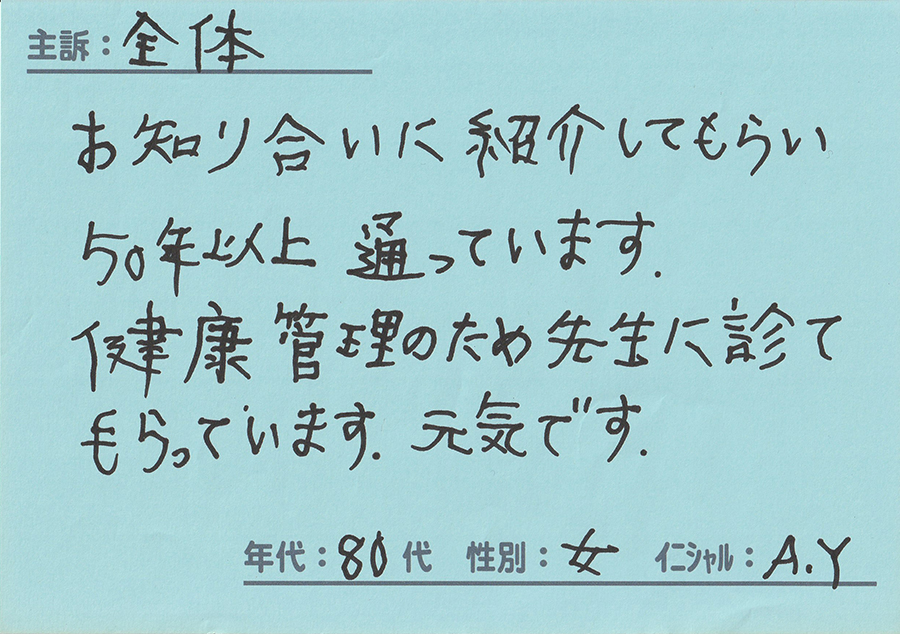 主訴：全体
お知り合いに紹介してもらい
50年以上 通っています.
健康管理のため先生に診て
もらっています. 元気です.
年代：80代 性別：女 イニシャル：A.Y